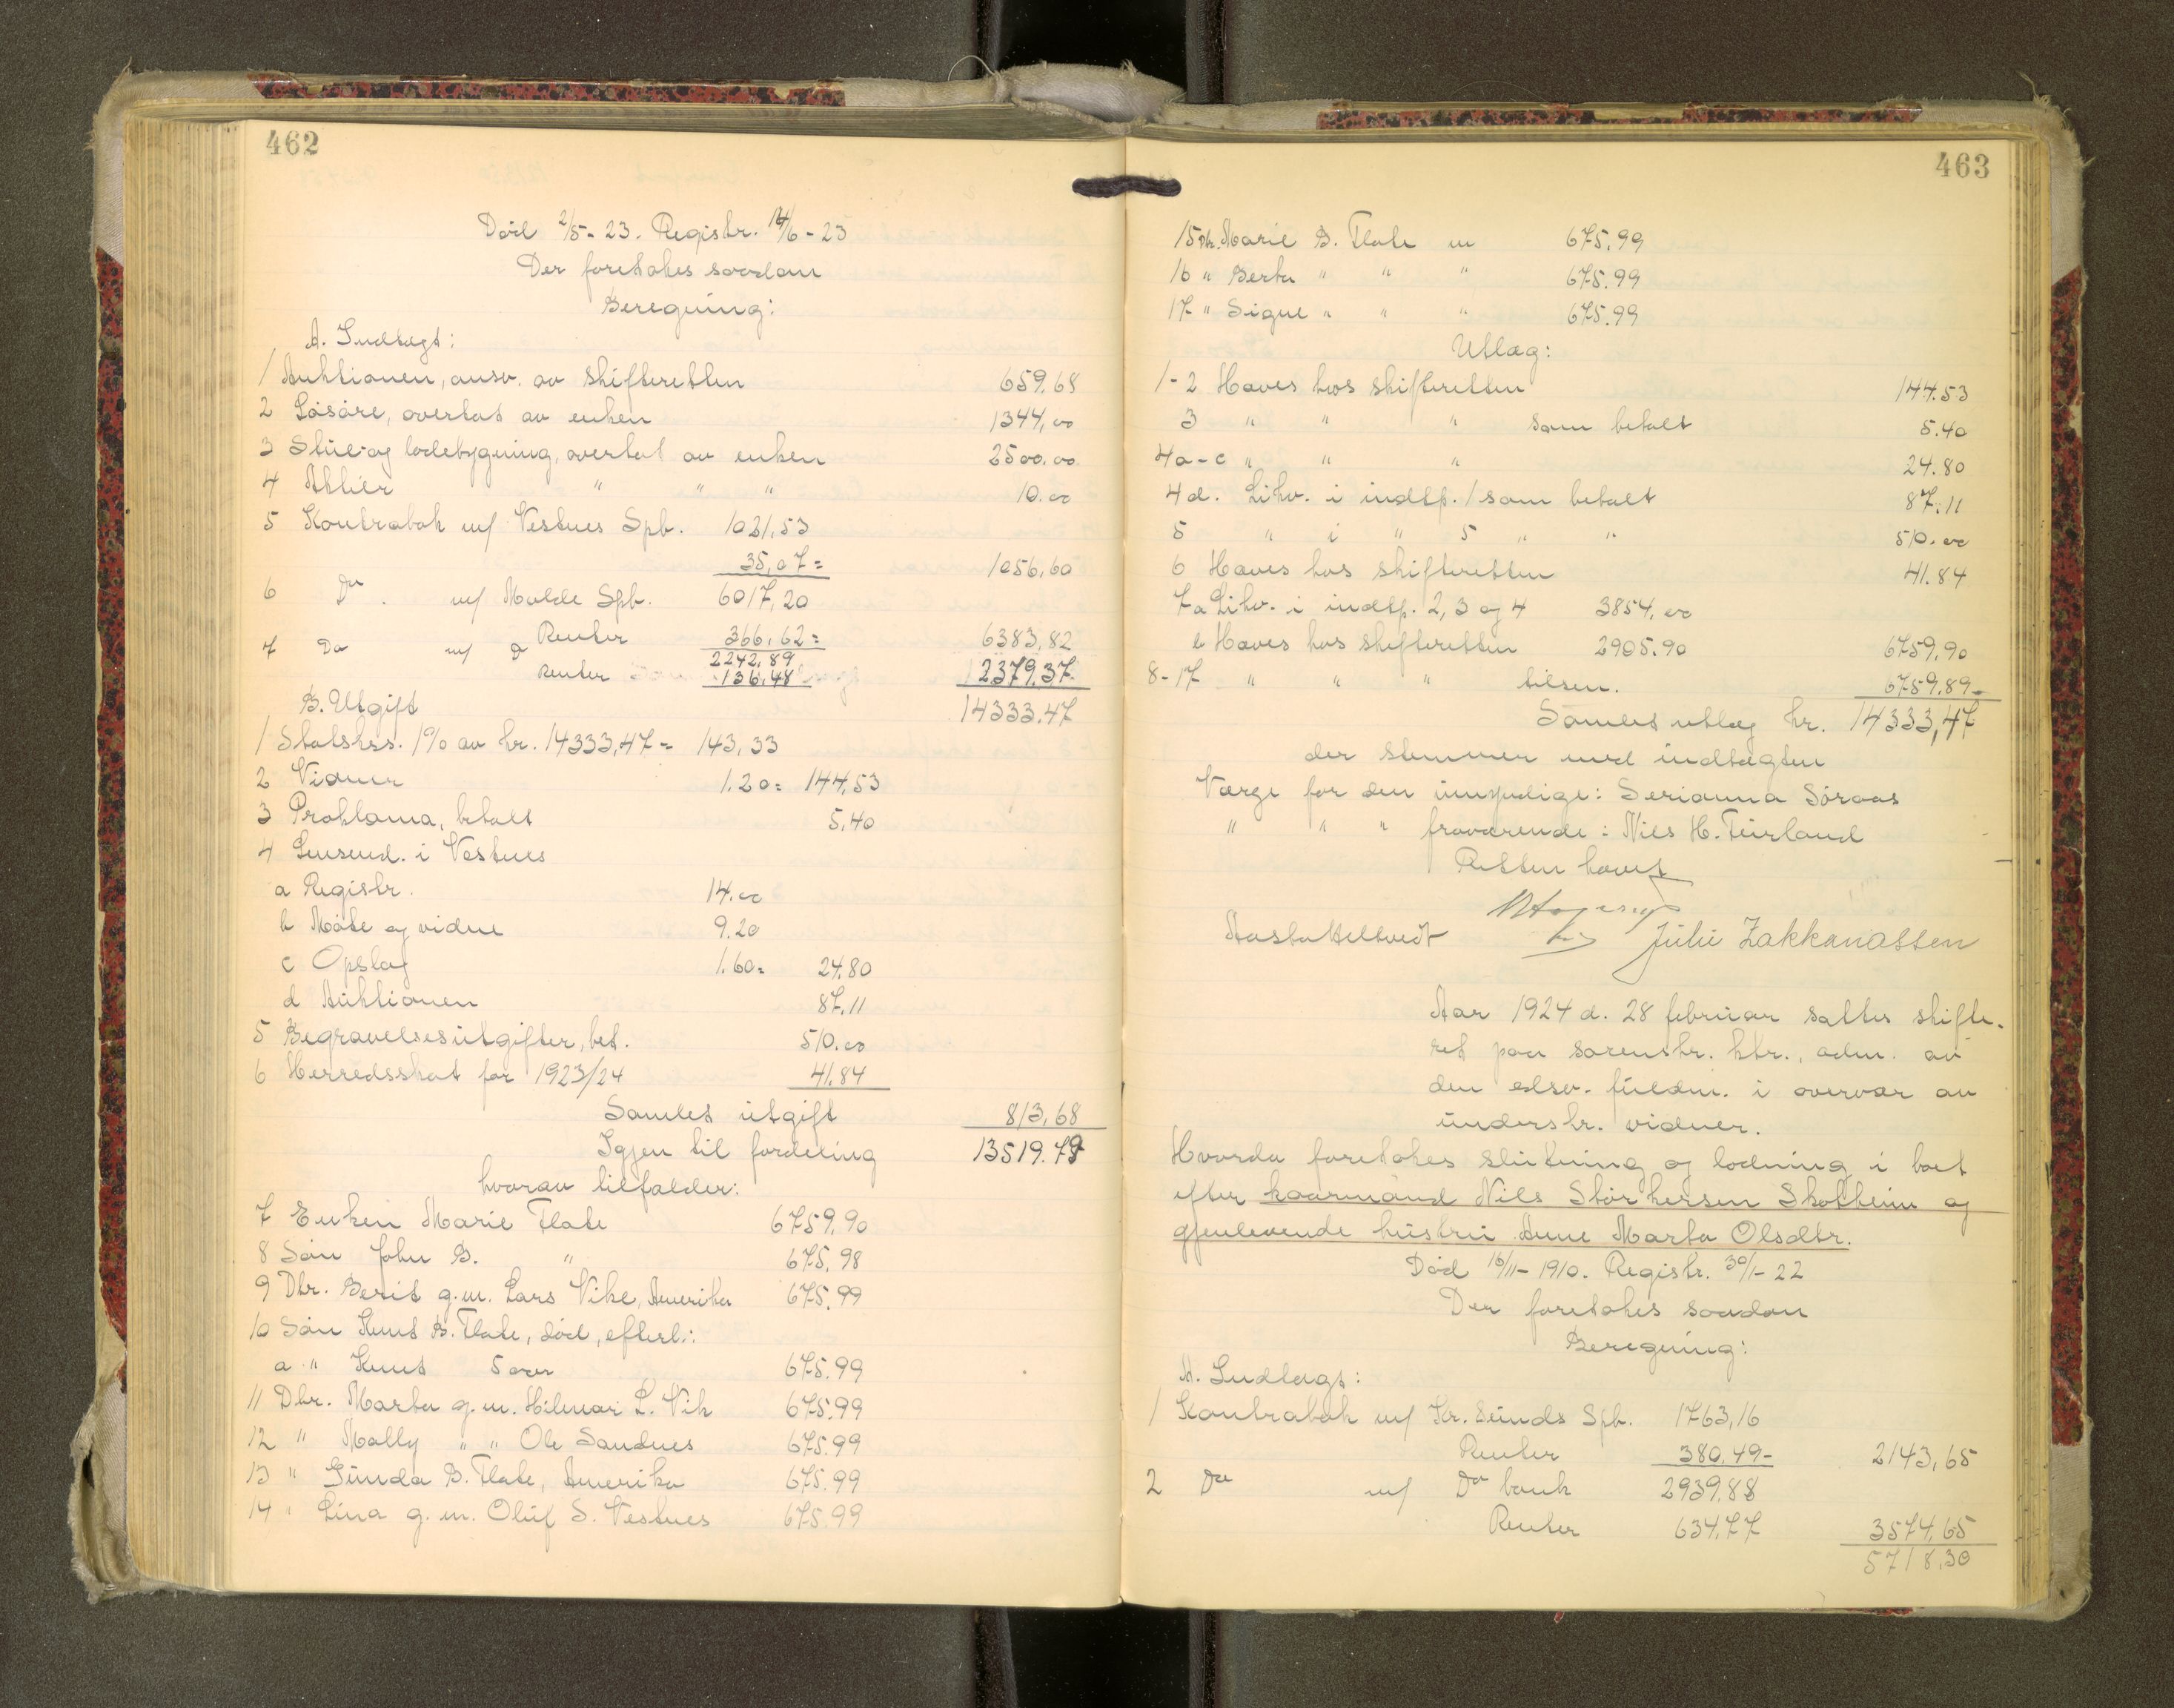 462
Død 2/5-23. Registr. 14/6-23
Der foretokes saadan
Beregning:
A. Indtægt:
1 Auktionen, ansv. av skifteretten 659.68
2 Løsøre, overtat av enken 1344,00
3 Stue- og lodebygning, overtat av enken 2500.00
4 Aktier " " " 10.00
5 Kontrabok m/ Vestnes Spb. 1021,53
35,07= 1056,60
6 Do. m/ Molde Spb. 6017,20
Renter 366,62= 6383,82
7 Do m/ D 2242,89
Renter 136,48 2379,37
B. Utgift 14333.47
1 Statskrs. 1% av kr. 14333,47= 143,33
2 Vidner 1.20= 144,53
3 Proklama, betalt 5,40
4 Lensmd. i Vestnes
a Registr. 14.00
b Møte og vidne 9.20
c Opslag 1.60= 24.80
d Auktionen 87.11
5 Begravelsesutgifter, bet. 510.00
6 Herredsskat for 1923/24 41.84
Samlet utgift 813,68
Igjen til fordeling 13519.79
hvorav tilfalder:
7 Enken Marie Flate 6759.90
8 Søn John B. " 675,98
9 Dtr. Berit g.m. Lars Vike, Amerika 675,99
10 Søn Knut B. Flate, død, efterl.:
a " Knut 5 aar 675.99
11 Dtr. Marta g.m. Hilmar L. Vik 675.99
12 " Mally " " Ole Sandnes 675.99
13 " Gunda B. Flate, Amerika 675.99
14 " Lina g.m. Oluf S. Vestnes 675.99
463
15 Dtr. Marie B. Flate m 675.99
16 " Berta " " " 675.99
17 " Signe " " " 675.99
Utlæg:
1-2 Haves hos skifteretten 144.53
3 " " " som betalt 5.40
4a-c " " " 24.80
4d. Likv. i indtp. 1 som betalt 87.11
5 " i " 5 " " 510.00
6 Haves hos skifteretten 41.84
7a Likv. i indtp. 2, 3 og 4 3854,00
b Haves hos skifteretten 2905.90 6759,90
8-17 " " " tilsm. 6759.89-
Samlet utlæg kr. 14333,47
der stemmer med indtægten
Værge for den umyndige: Serianna Søraas
" " " fraværende: Nils H. Furland
Retten hævet
Aasta Heltvedt Julie Zakkariassen
Aar 1924 d. 28 februar sattes skifte-
ret paa sorenskr. ktr., adm. av
den edsv. fuldm. i overvær av
underskr. vidner.
Hvorda foretokes slutning og lodning i boet
efter kaarmand Nils Størkersen Skotheim og
gjenlevende hustru Anne Marta Olsdtr.
Død 16/11-1910. Registr. 30/1-22
Der foretokes saadan
Beregning:
A. Indtægt:
1 Kontrabok m/ Kr. sunds Spb. 1763,16
Renter 380,49- 2143,65
2 Do m/ Do bank 2939.88
Renter 634.77 3574,65
5718,30